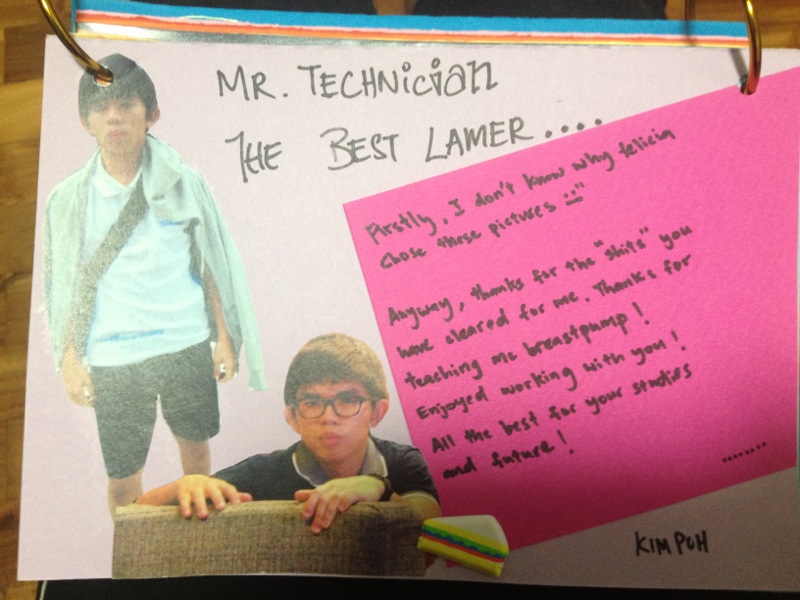 MR. TECHNICIAN
THE BEST LAMER....
Firstly, I don't know why felicia
chose these pictures :"
Anyway, thanks for the "shits" you
have cleared for me. Thanks for
teaching me breastpump!
Enjoyed working with you!
All the best for your studies
and future!
........
KIM POH